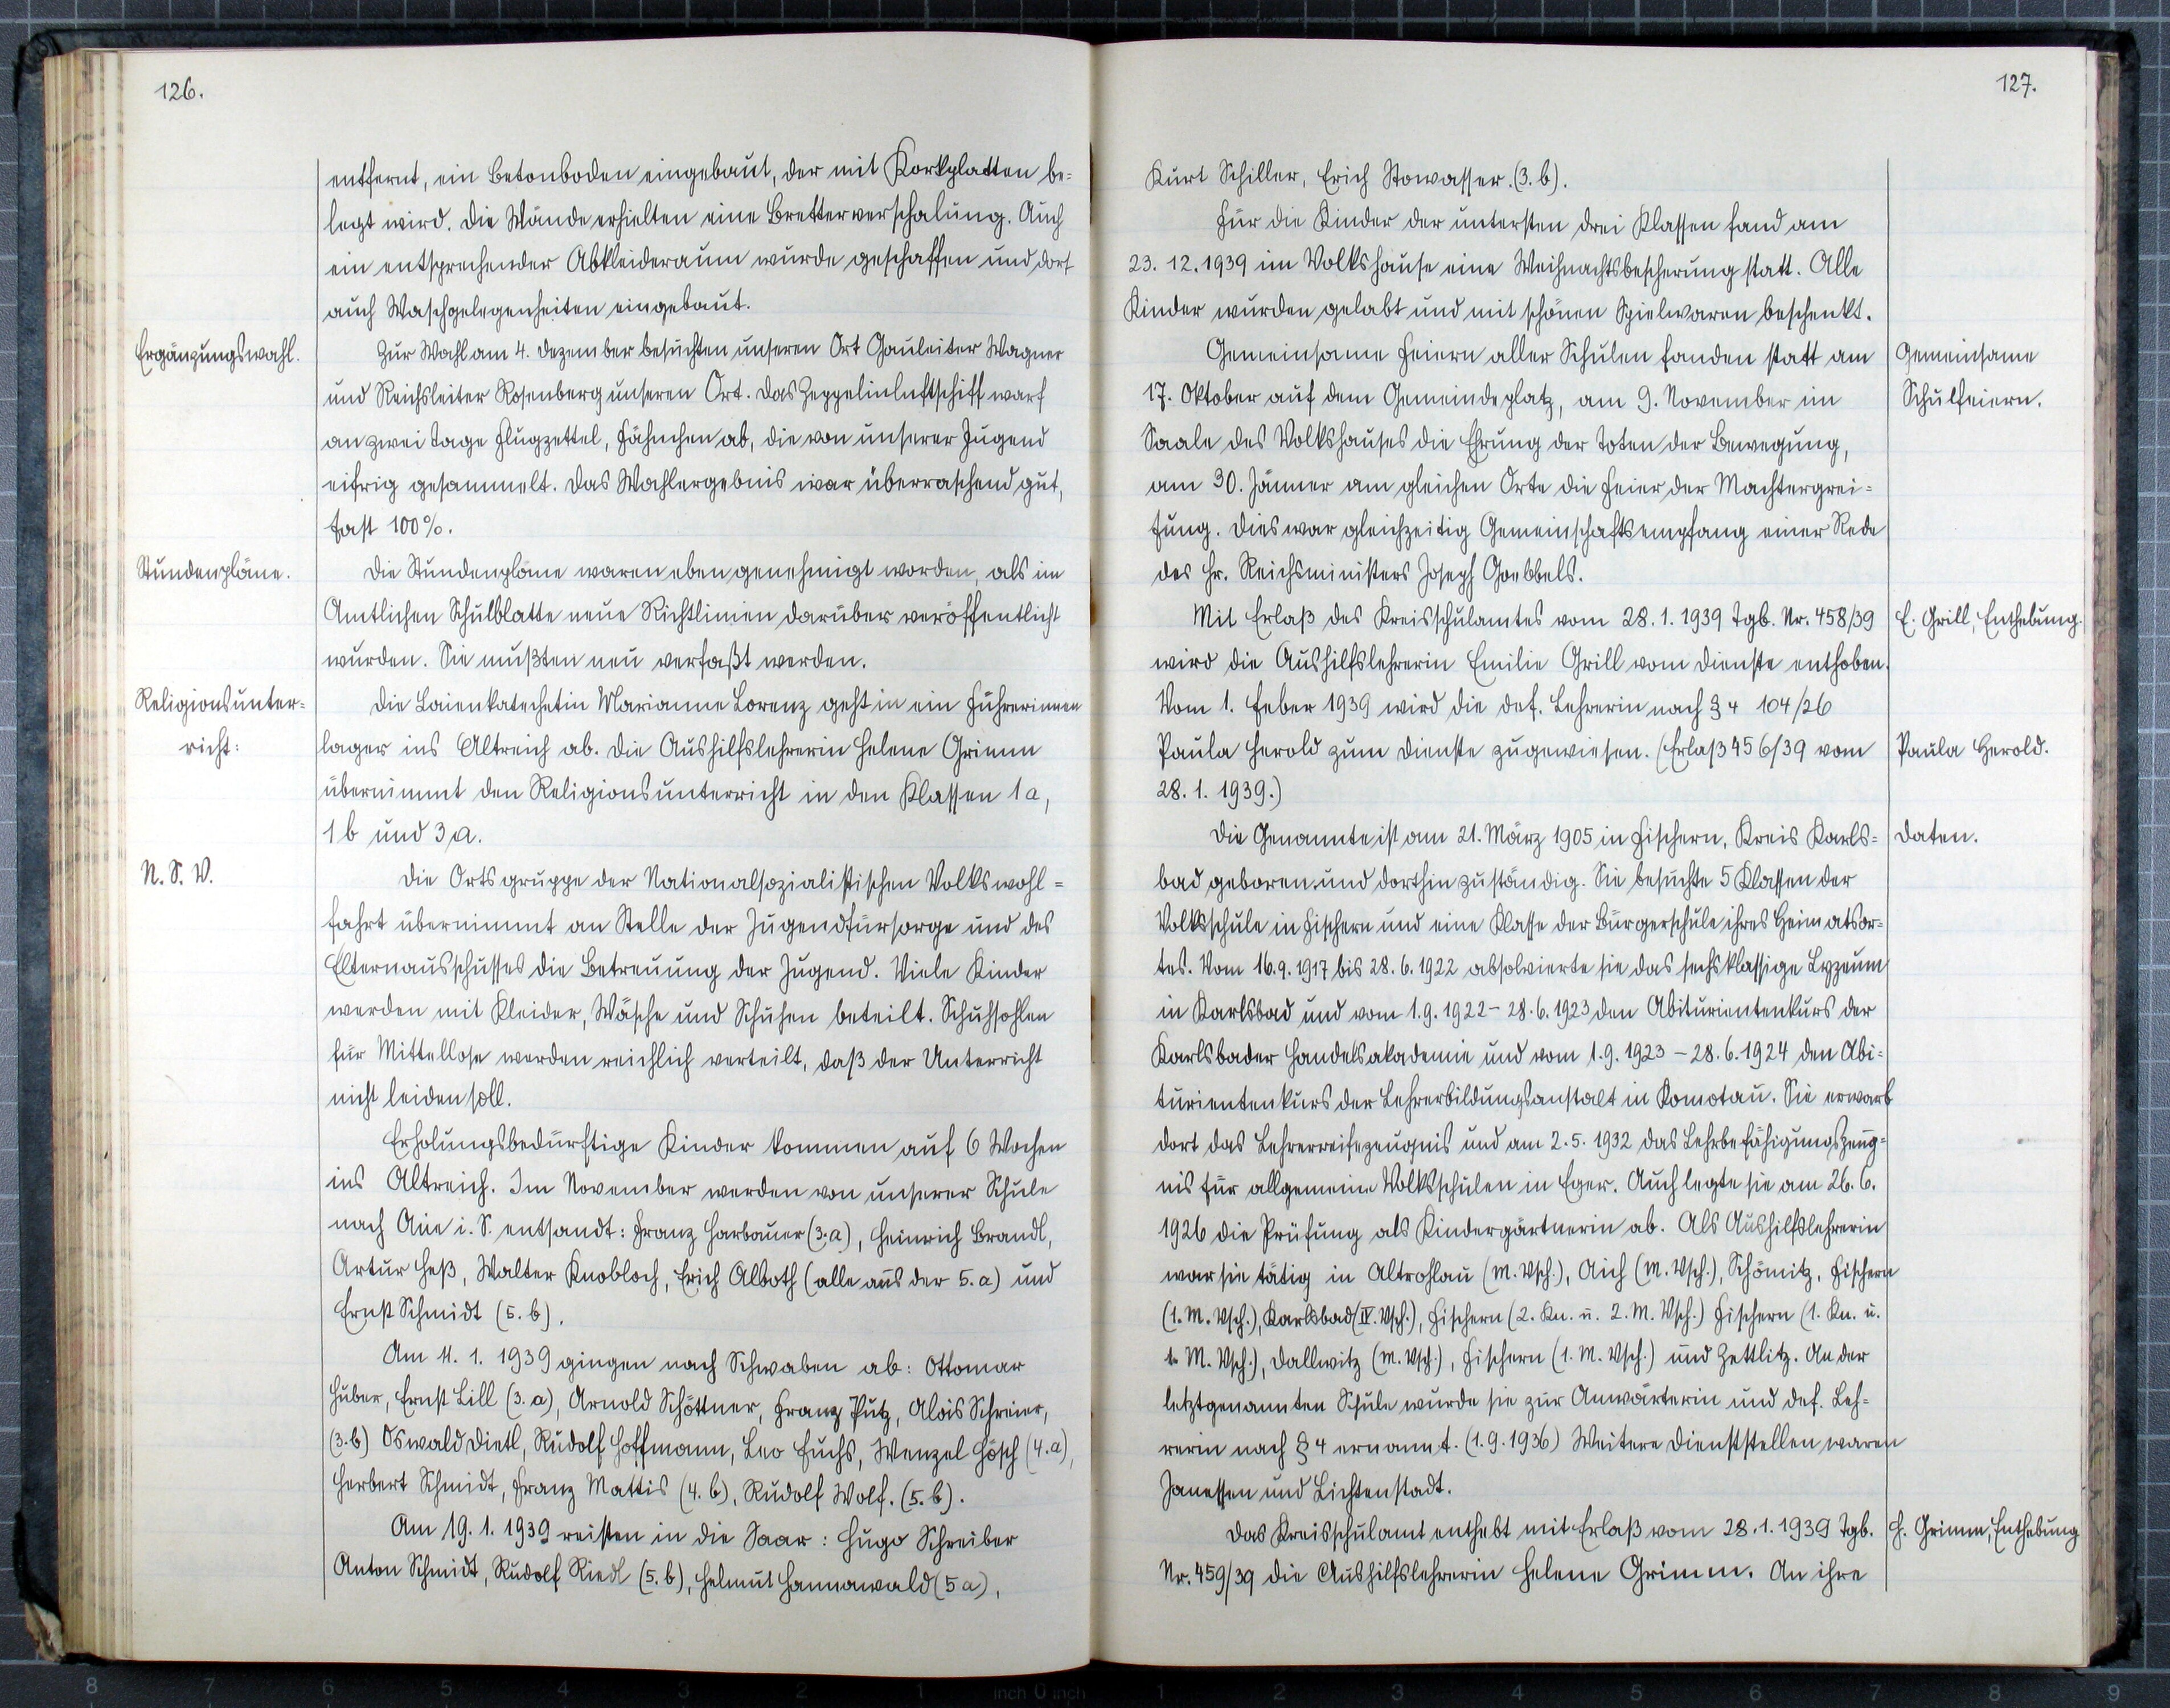 126.
entfernt, ein Betonboden eingebaut, der mit Korkplatten be=
legt wird. Die Wände erhielten eine Bretterverschalung. Auch
ein entsprechender Abkleideraum wurde geschaffen und dort
auch Waschgelegenheiten eingebaut.
Ergänzungswahl.
Zur Wahl am 4. Dezember besuchten unseren Ort Gauleiter Wagner
und Reichsleiter Rosenberg unseren Ort. Das Zeppelinluftschiff warf
an zwei Tage Flugzettel, Fähnchen ab, die von unserer Jugend
eifrig gesammelt. Das Wahlergebnis war überraschend gut,
fast 100%.
Stundenpläne.
Die Stundenpläne waren eben genehmigt worden, als im
Amtlichen Schulblatte neue Richtlinien darüber veröffentlicht
wurden. Sie mußten neu verfaßt werden.
Religionsunter=
richt:
Die Laienkatechetin Marianne Lorenz geht in ein Führerinnen
lager ins Altreich ab. Die Aushilfslehrerin Helene Grimm
übernimmt den Religionsunterricht in den Klassen 1a,
1b und 3a.
N. S. V.
Die Ortsgruppe der Nationalsozialistischen Volkswohl=
fahrt übernimmt an Stelle der Jugendfürsorge und des
Elternausschusses die Betreuung der Jugend. Viele Kinder
werden mit Kleider, Wäsche und Schuhen beteilt. Schuhsohlen
für Mittellose werden reichlich verteilt, daß der Unterricht
nicht leiden soll.
Erholungsbedürftige Kinder kommen auf 6 Wochen
ins Altreich. Im November werden von unserer Schule
nach Aue i. S. entsandt: Franz Harbauer (3.a), Heinrich Brandl,
Artur Heß, Walter Knobloch, Erich Alboth (alle aus der 5.a) und
Ernst Schmidt (5.b).
Am 11. 1. 1939 gingen nach Schwaben ab: Ottomar
Huber, Ernst Lill (3.a), Arnold Schöttner, Franz Putz, Alois Schreier,
(3.b) Oswald Dietl, Rudolf Hoffmann, Leo Fuchs, Wenzel Hösch (4.a),
Herbert Schmidt, Franz Mattis (4.b), Rudolf Wolf. (5.b).
Am 19. 1. 1939 reisten in die Saar: Hugo Schreiber
Anton Schmidt, Rudolf Riedl (5.b), Helmut Hannawald (5a),
127.
Kurt Schiller, Erich Stowasser. (3.b).
Für die Kinder der untersten drei Klassen fand am
23. 12. 1939 im Volkshause eine Weihnachtsbescherung statt. Alle
Kinder wurden gelabt und mit schönen Spielwaren beschenkt.
Gemeinsame Feiern aller Schulen fanden statt am
Gemeinsame
17. Oktober auf dem Gemeindeplatz, am 9. November im
Schulfeiern.
Saale des Volkshauses die Ehrung der Toten der Bewegung,
am 30. Jänner am gleichen Orte die Feier der Machtergrei=
fung. Dies war gleichzeitig Gemeinschaftsempfang einer Rede
des Hr. Reichsministers Joseph Goebbels.
Mit Erlaß des Kreisschulamtes vom 28. 1. 1939 Tgb. Nr. 458/39
E. Grill, Enthebung.
wird die Aushilfslehrerin Emilie Grill vom Dienste enthoben.
Vom 1. Feber 1939 wird die def. Lehrerin nach § 4 104/26
Paula Herold zum Dienste zugewiesen. (Erlaß 456/39 vom
Paula Herold.
28. 1. 1939.)
Die Genannte ist am 21. März 1905 in Fischern, Kreis Karls=
Daten.
bad geboren und dorthin zuständig. Sie besuchte 5 Klassen der
Volksschule in Fischern und eine Klasse der Bürgerschule ihres Heimatsor=
tes. Vom 16.9.1917 bis 28.6.1922 absolvierte sie das sechsklassige Lyzeum
in Karlsbad und vom 1.9.1922 - 28.6.1923 den Abiturientenkurs der
Karlsbader Handelsakademie und vom 1.9.1923 - 28.6.1924 den Abi=
turientenkurs der Lehrerbildungsanstalt in Komotau. Sie erwarb
dort das Lehrerreifezeugnis und am 2.5.1932 das Lehrbefähigungszeug=
nis für allgemeine Volksschulen in Eger. Auch legte sie am 26.6.
1926 die Prüfung als Kindergärtnerin ab. Als Aushilfslehrerin
war sie tätig in Altrohlau (M. Vsch.), Aich (M. Vsch.), Schömitz, Fischern
(1. M. Vsch.), Karlsbad (IV. Vsch.), Fischern (2. Kn. u. 2. M. Vsch.) Fischern (1. Kn. u.
1. M. Vsch.), Dallwitz (M. Vsch.), Fischern (1. M. Vsch.) und Zettlitz. An der
letztgenannten Schule wurde sie zur Anwärterin und def. Leh=
rerin nach § 4 ernannt. (1.9.1936) Weitere Dienststellen waren
Janessen und Lichtenstadt.
Das Kreisschulamt enthebt mit Erlaß vom 28.1.1939 Tgb.
H. Grimm, Enthebung
Nr. 459/39 die Aushilfslehrerin Helene Grimm. An ihre
8 7 6 5 4 3 2 1 inch 0 inch 1 2 3 4 5 6 7 8 9